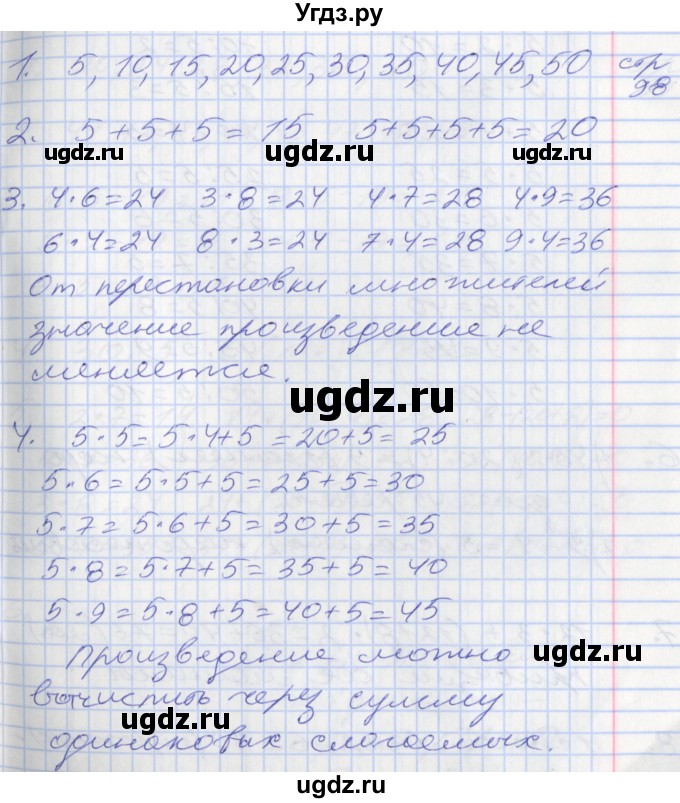 Угдз.ру
1. 5, 10, 15, 20, 25, 30, 35, 40, 45, 50 стр 98
2. 5+5+5=15 5+5+5+5=20
ugdz.ru ugdz.ru ugdz.ru
3. 4·6=24 3·8=24 4·7=28 4·9=36
6·4=24 8·3=24 7·4=28 9·4=36
От перестановки множителей
значение произведение не
меняется.
ugdz.ru
4. 5·5=5·4+5=20+5=25
5·6=5·5+5=25+5=30
5·7=5·6+5=30+5=35
5·8=5·7+5=35+5=40
5·9=5·8+5=40+5=45
Произведение можно
ugdz.ru
вычислить через сумму
ugdz.ru
одинаковых слагаемых.
ugdz.ru